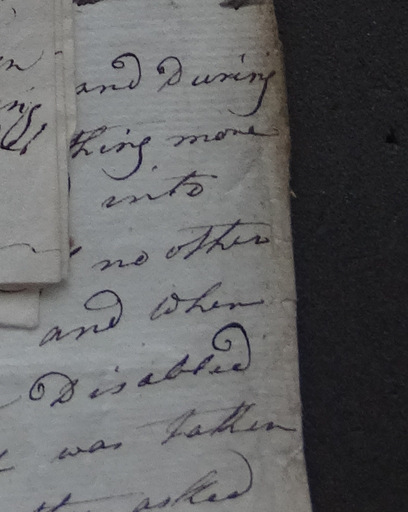 and During
thing more
into
no other
and when
Disabled
was taken
asked